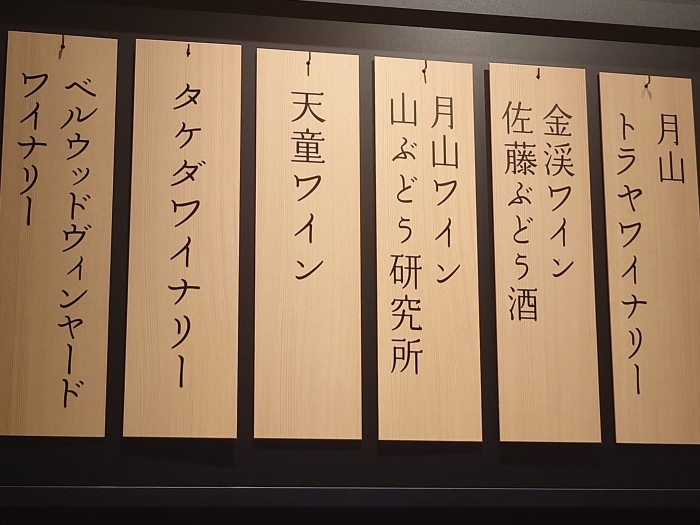 月山
トラヤワイナリー
金渓ワイン
佐藤ぶどう酒
天童ワイン
月山ワイン
山ぶどう研究所
タケダワイナリー
ベルウッドヴィンヤード
ワイナリー